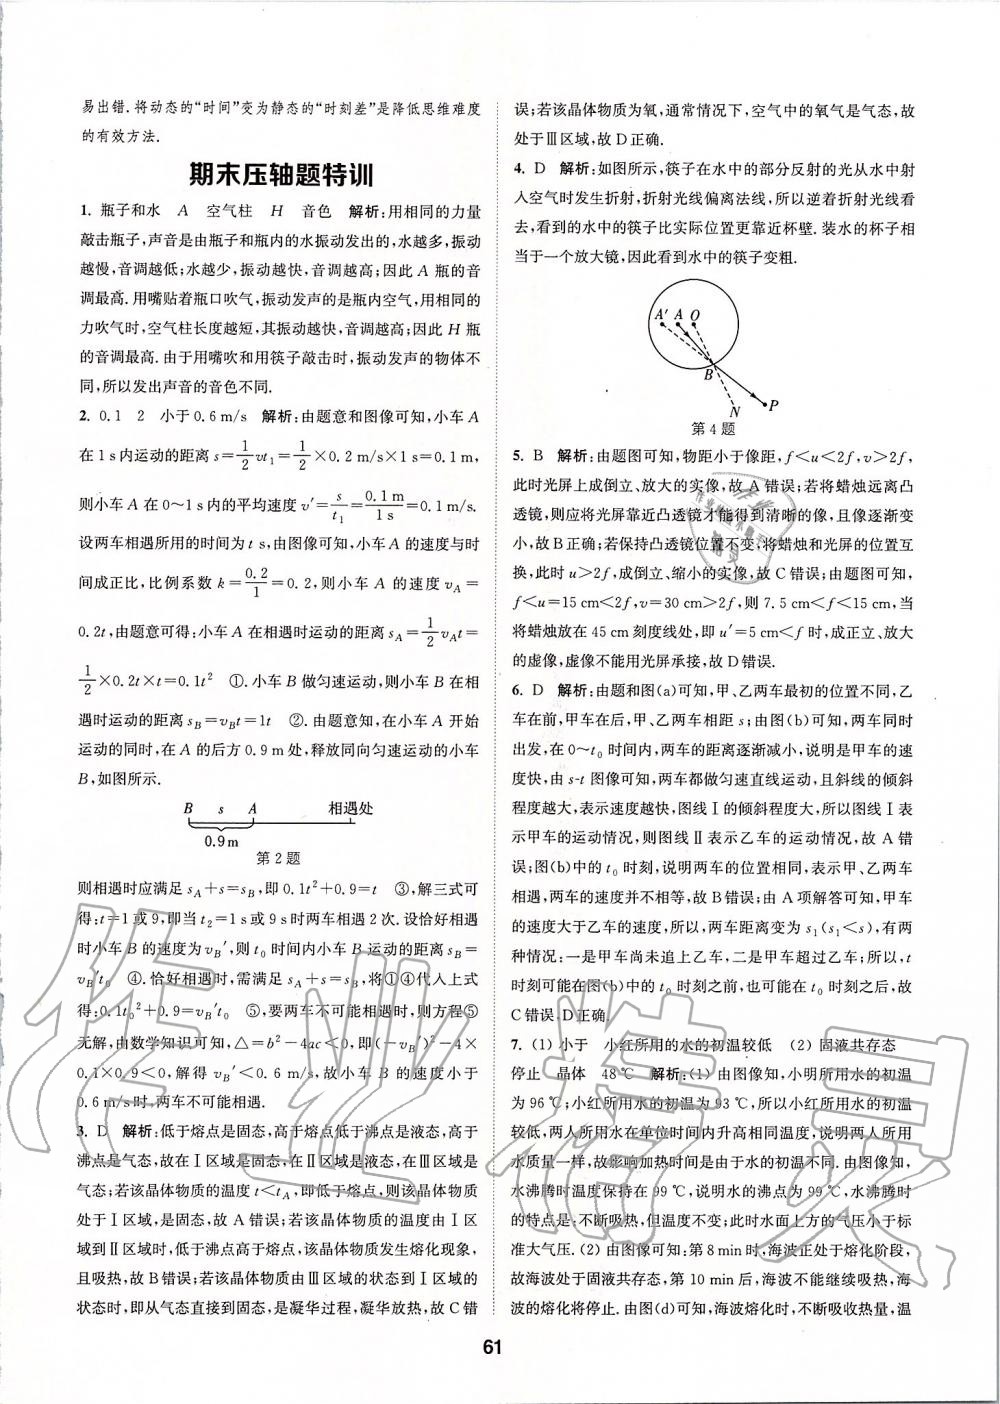 易出错.将动态的“时间”变为静态的“时刻差”是降低思维难度
的有效方法.
期末压轴题特训
1. 瓶子和水 A 空气柱 H 音色 解析:用相同的力量
敲击瓶子,声音是由瓶子和瓶内的水振动发出的,水越多,振动
越慢,音调越低;水越少,振动越快,音调越高;因此 A 瓶的音
调最高.用嘴贴着瓶口吹气,振动发声的是瓶内空气,用相同的
力吹气时,空气柱长度越短,其振动越快,音调越高;因此 H 瓶
的音调最高.由于用嘴吹和用筷子敲击时,振动发声的物体不
同,所以发出声音的音色不同.
2. 0.1 2 小于0.6 m/s 解析:由题意和图像可知,小车 A
在 1 s 内运动的距离 s=1/2 vt₁=1/2×0.2 m/s×1 s=0.1 m,
则小车 A 在 0～1 s 内的平均速度 v′=s/t₁=0.1 m/1 s=0.1 m/s.
设两车相遇所用的时间为 t s,由图像可知,小车 A 的速度与时
间成正比,比例系数 k=0.2/1=0.2,则小车 A 的速度 v_A=
0.2t,由题意可得:小车 A 在相遇时运动的距离 s_A=1/2 v_A t=
1/2×0.2t×t=0.1t² ①.小车 B 做匀速运动,则小车 B 在相
遇时运动的距离 s_B=v_B t=1t ②.由题意知,在小车 A 开始
运动的同时,在 A 的后方 0.9 m 处,释放同向匀速运动的小车
B,如图所示.
B s A 相遇处
0.9 m
第 2 题
则相遇时应满足 s_A+s=s_B,即 0.1t²+0.9=t ③,解三式可
得:t=1或9,即当 t₂=1 s或9 s时两车相遇2次.设恰好相遇
时小车 B 的速度为 v_B′,则 t₀ 时间内小车 B 运动的距离 s_B=
v_B′t₀ ④.恰好相遇时,需满足 s_A+s=s_B,将①④代入上式
得:0.1t₀²+0.9=v_B′t₀ ⑤,要两车不可能相遇时,则方程⑤
无解,由数学知识可知,△=b²−4ac<0,即(−v_B′)²−4×
0.1×0.9<0,解得 v_B′<0.6 m/s,故小车 B 的速度小于
0.6 m/s时,两车不可能相遇.
3. D 解析:低于熔点是固态,高于熔点低于沸点是液态,高于
沸点是气态,故在Ⅰ区域是固态,在Ⅱ区域是液态,在Ⅲ区域是
气态;若该晶体物质的温度 t<t_A,即低于熔点,则该晶体物质
处于Ⅰ区域,是固态,故 A 错误;若该晶体物质的温度由Ⅰ区
域到Ⅱ区域时,低于沸点高于熔点,该晶体物质发生熔化现象,
且吸热,故 B 错误;若该晶体物质由Ⅲ区域的状态到Ⅰ区域的
状态时,即从气态直接到固态,是凝华过程,凝华放热,故 C 错
误;若该晶体物质为氧,通常情况下,空气中的氧气是气态,故
处于Ⅲ区域,故 D 正确.
4. D 解析:如图所示,筷子在水中的部分反射的光从水中射
入空气时发生折射,折射光线偏离法线,所以逆着折射光线看
去,看到的水中的筷子比实际位置更靠近杯壁.装水的杯子相
当于一个放大镜,因此看到水中的筷子变粗.
A′ A O
B
N P
第 4 题
5. B 解析:由题图可知,物距小于像距,f<u<2f,v>2f,
此时光屏上成倒立、放大的实像,故 A 错误;若将蜡烛远离凸
透镜,则应将光屏靠近凸透镜才能得到清晰的像,且像逐渐变
小,故 B 正确;若保持凸透镜位置不变,将蜡烛和光屏的位置互
换,此时 u>2f,成倒立、缩小的实像,故 C 错误;由题图可知,
f<u=15 cm<2f,v=30 cm>2f,则 7.5 cm<f<15 cm,当
将蜡烛放在 45 cm 刻度线处,即 u′=5 cm<f 时,成正立、放大
的虚像,虚像不能用光屏承接,故 D 错误.
6. D 解析:由题和图(a)可知,甲、乙两车最初的位置不同,乙
车在前,甲车在后,甲、乙两车相距 s;由图(b)可知,两车同时
出发,在 0～t₀ 时间内,两车的距离逐渐减小,说明是甲车的速
度快,由 s-t 图像可知,两车都做匀速直线运动,且斜线的倾斜
程度越大,表示速度越快,图线Ⅰ的倾斜程度大,所以图线Ⅰ表
示甲车的运动情况,则图线Ⅱ表示乙车的运动情况,故 A 错
误;图(b)中的 t₀ 时刻,说明两车的位置相同,表示甲、乙两车
相遇,两车的速度并不相等,故 B 错误;由 A 项解答可知,甲车
的速度大于乙车的速度,所以,两车距离变为 s₁(s₁<s),有两
种情况:一是甲车尚未追上乙车,二是甲车超过乙车;所以,t
时刻可能在图(b)中的 t₀ 时刻之前,也可能在 t₀ 时刻之后,故
C 错误,D 正确.
7. (1) 小于 小红所用的水的初温较低 (2) 固液共存态
停止 晶体 48 ℃ 解析:(1) 由图像知,小明所用水的初温
为 96 ℃;小红所用水的初温为 93 ℃,所以小红所用水的初温
较低,两人所用水在单位时间内升高相同温度,说明两人所用
水质量一样,故影响加热时间是由于水的初温不同.由图像知,
水沸腾时温度保持在 99 ℃,说明水的沸点为 99 ℃,水沸腾时
的特点是:不断吸热,但温度不变;此时水面上方的气压小于标
准大气压.(2) 由图像可知:第 8 min 时,海波正处于熔化阶段,
故海波处于固液共存态,第 10 min 后,海波不能继续吸热,海
波的熔化将停止.由图(d)可知,海波熔化时,不断吸收热量,温
61
作业精灵